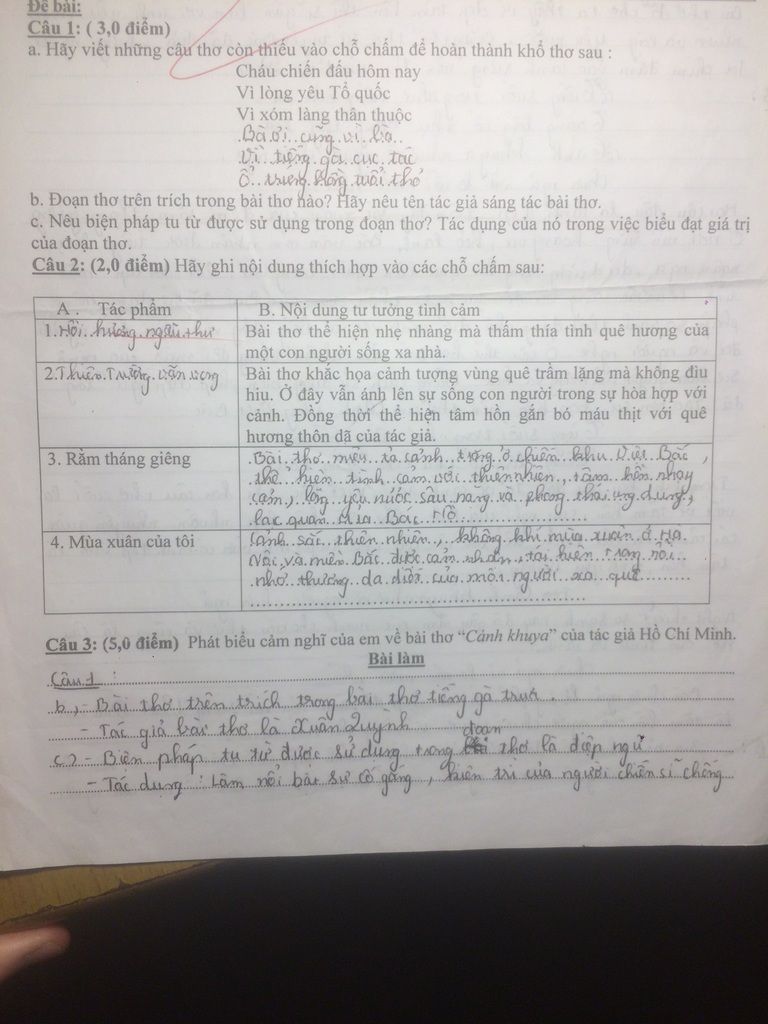 Đề bài:
Câu 1: ( 3,0 điểm)
a. Hãy viết những câu thơ còn thiếu vào chỗ chấm để hoàn thành khổ thơ sau :
Cháu chiến đấu hôm nay
Vì lòng yêu Tổ quốc
Vì xóm làng thân thuộc
Bà ơi cũng vì bà
Vì tiếng gà cục tác
Ổ trứng hồng tuổi thơ
b. Đoạn thơ trên trích trong bài thơ nào? Hãy nêu tên tác giả sáng tác bài thơ.
c. Nêu biện pháp tu từ được sử dụng trong đoạn thơ? Tác dụng của nó trong việc biểu đạt giá trị
của đoạn thơ.
Câu 2: (2,0 điểm) Hãy ghi nội dung thích hợp vào các chỗ chấm sau:
A . Tác phẩm
B. Nội dung tư tưởng tình cảm
1.Hồi hương ngẫu thư
Bài thơ thể hiện nhẹ nhàng mà thấm thía tình quê hương của
một con người sống xa nhà.
2.Thiên Trường vãn vọng
Bài thơ khắc họa cảnh tượng vùng quê trầm lặng mà không đìu
hiu. Ở đây vẫn ánh lên sự sống con người trong sự hòa hợp với
cảnh. Đồng thời thể hiện tâm hồn gắn bó máu thịt với quê
hương thôn dã của tác giả.
3. Rằm tháng giêng
Bài thơ miêu tả cảnh trăng ở chiến khu Việt Bắc,
thể hiện tình cảm với thiên nhiên, tâm hồn nhạy
cảm, lòng yêu nước sâu nặng và phong thái ung dung,
lạc quan của Bác Hồ
4. Mùa xuân của tôi
Cảnh sắc thiên nhiên, không khí mùa xuân ở Hà
Nội và miền Bắc được cảm nhận, tái hiện trong nỗi
nhớ thương da diết của một người xa quê
Câu 3: (5,0 điểm) Phát biểu cảm nghĩ của em về bài thơ “Cảnh khuya” của tác giả Hồ Chí Minh.
Bài làm
Câu 1 :
b, - Bài thơ trên trích trong bài thơ tiếng gà trưa .
- Tác giả bài thơ là Xuân Quỳnh
c) - Biện pháp tu từ được sử dụng trong đoạn thơ là điệp ngữ
- Tác dụng : Làm nổi bật sự cố gắng , kiên trì của người chiến sĩ chống